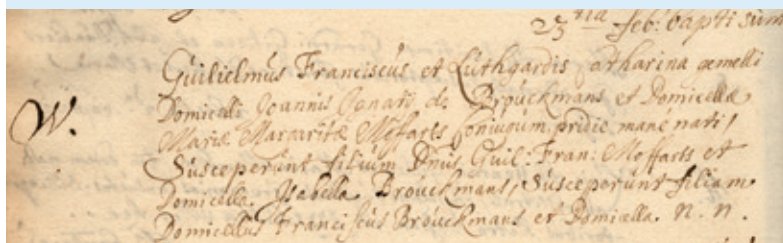 25 tia feb: baptisum
Guilielmus Franciscus et Luthgardis Catharina gemelli
W. Domicelli Joannis Ignatij de Brouckmans et Domicellæ
Mariæ Margaritæ Moffarts conjugum pridie mane nati,
Susceperunt filium Dnus Guil: Fran: Moffarts et
Domicella Isabella Brouckmans, Susceperunt filiam
Domicellus Franciscus Brouckmans et Domicella. N. N.